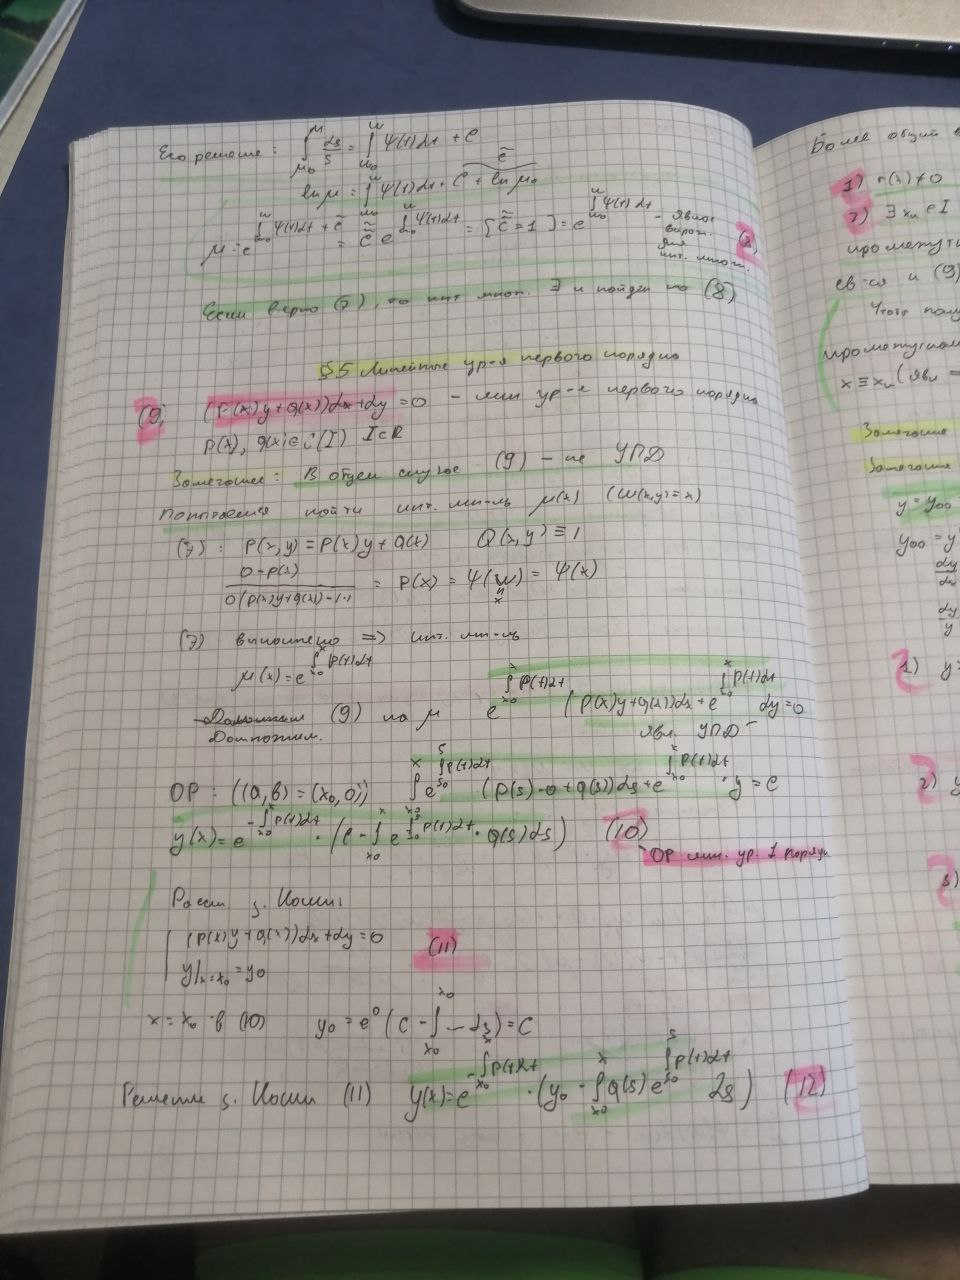 Его решение: ∫_{μ₀}^{μ} ds/s = ∫_{w₀}^{w} Ψ(t)dt + C
ln μ = ∫_{w₀}^{w} Ψ(t)dt + C + ln μ₀ (C̃)
μ = e^{∫_{w₀}^{w} Ψ(t)dt + C̃} = C̃̃ e^{∫_{w₀}^{w} Ψ(t)dt} = [C̃̃ = 1] = e^{∫_{w₀}^{w} Ψ(t)dt} - явное выраж. для инт. множ. (8)
Если верно (7), то инт множ. ∃ и найден по (8)
§5 Линейные ур-я первого порядка
(9) (P(x)y+q(x))dx+dy=0 - лин ур-е первого порядка
P(x), q(x)∈C(I) I⊂R
Замечание: В общем случае (9) - не УПД
Попытаемся найти инт. мн-ль μ(x) (w(x,y)=x)
(7): P(x,y) = P(x)y+q(x) Q(x,y) ≡ 1
(0-p(x))/(0(p(x)y+q(x))-1·1) = P(x) = Ψ(w) = Ψ(x)
(7) выполнено => инт. мн-ль
μ(x) = e^{∫_{x₀}^{x} p(t)dt}
Домножим. (9) на μ e^{∫_{x₀}^{x} p(t)dt} (p(x)y+q(x))dx + e^{∫_{x₀}^{x} p(t)dt} dy=0
явл. УПД
ОР: ((a,b) = (x₀,0)) ∫_{x₀}^{x} e^{∫_{x₀}^{s} p(t)dt} (p(s)·0+q(s))ds + e^{∫_{x₀}^{x} p(t)dt} · y = C
y(x) = e^{-∫_{x₀}^{x} p(t)dt} · (C - ∫_{x₀}^{x} e^{∫_{x₀}^{s} p(t)dt} · q(s)ds) (10)
ОР лин. ур. 1 порядк
Рассм з. Коши:
(p(x)y+q(x))dx+dy=0
(11)
y|_{x=x₀} = y₀
x = x₀ в (10) y₀ = e⁰ (C - ∫_{x₀}^{x₀} — ds) = C
Решение з. Коши (11) y(x) = e^{-∫_{x₀}^{x} p(t)dt} · (y₀ - ∫_{x₀}^{x} q(s) e^{∫_{x₀}^{s} p(t)dt} ds) (12)
Более общий
1) n(x) ≠ 0
2) ∃ xₙ ∈ I
промежут
св-ся и (9)
Чтобы пол
промежутком
x ≡ xₙ (явл
Замечание
Замечание
y = y₀₀
y₀₀ = y
dy/dx
dy/y
1) y
2) y
3)